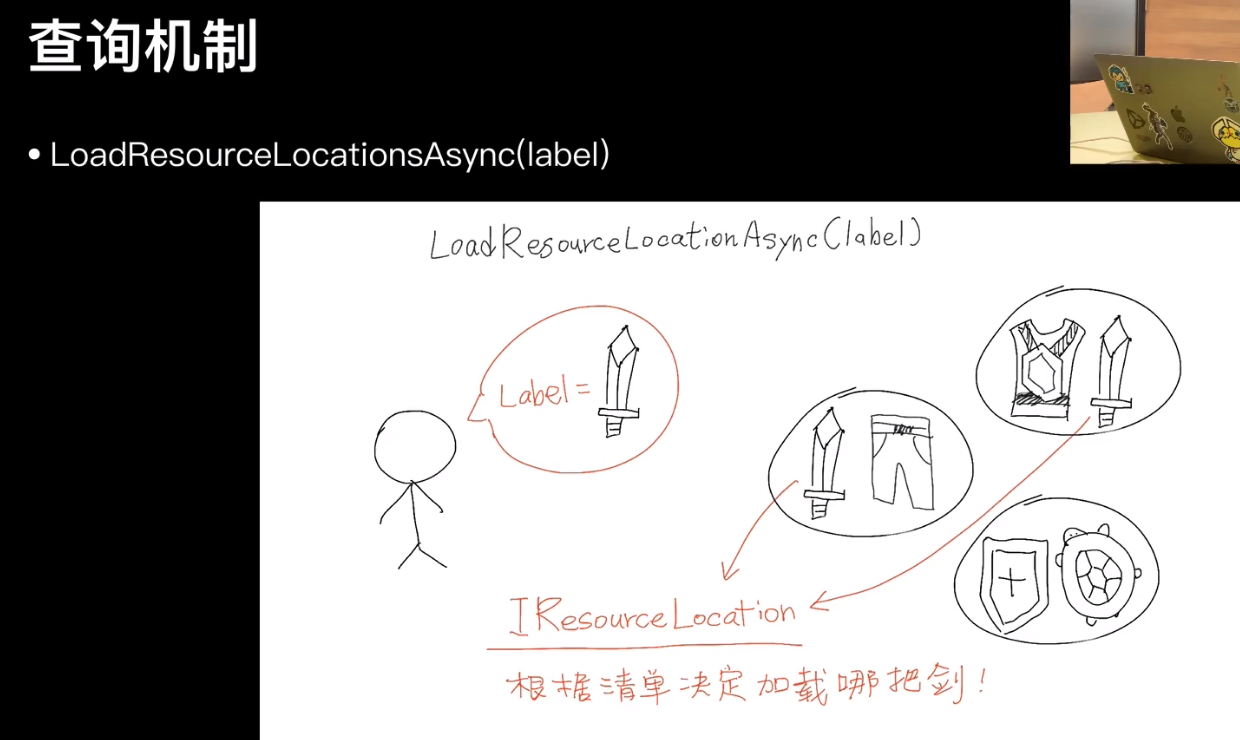 查询机制
• LoadResourceLocationsAsync(label)
LoadResourceLocationAsync(label)
Label=
IResourceLocation
根据清单决定加载哪把剑!